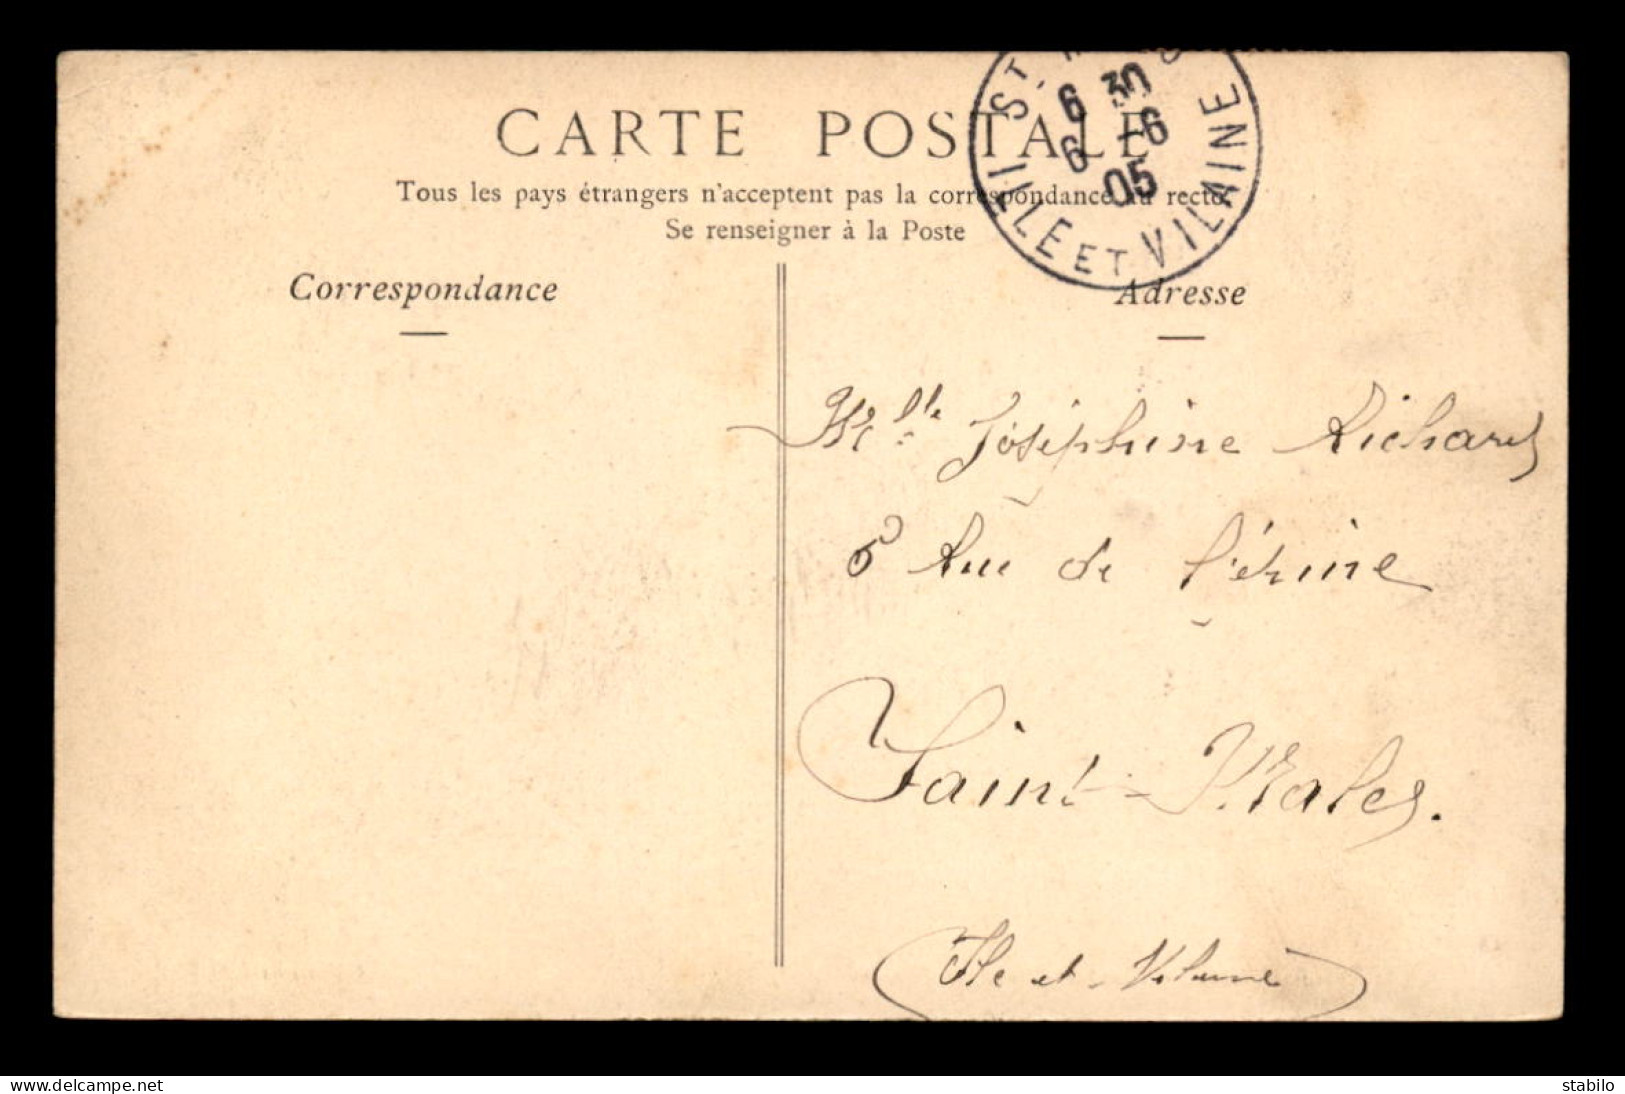 CARTE POSTALE
Tous les pays étrangers n'acceptent pas la correspondance au recto.
Se renseigner à la Poste
ST
6 30
6 -6
05
ILLE ET VILAINE
Correspondance
Adresse
Mlle Joséphine Richard
6 Rue de l'érine
Saint-Malo.
Ile et-Vilaine
www.delcampe.net
stabilo